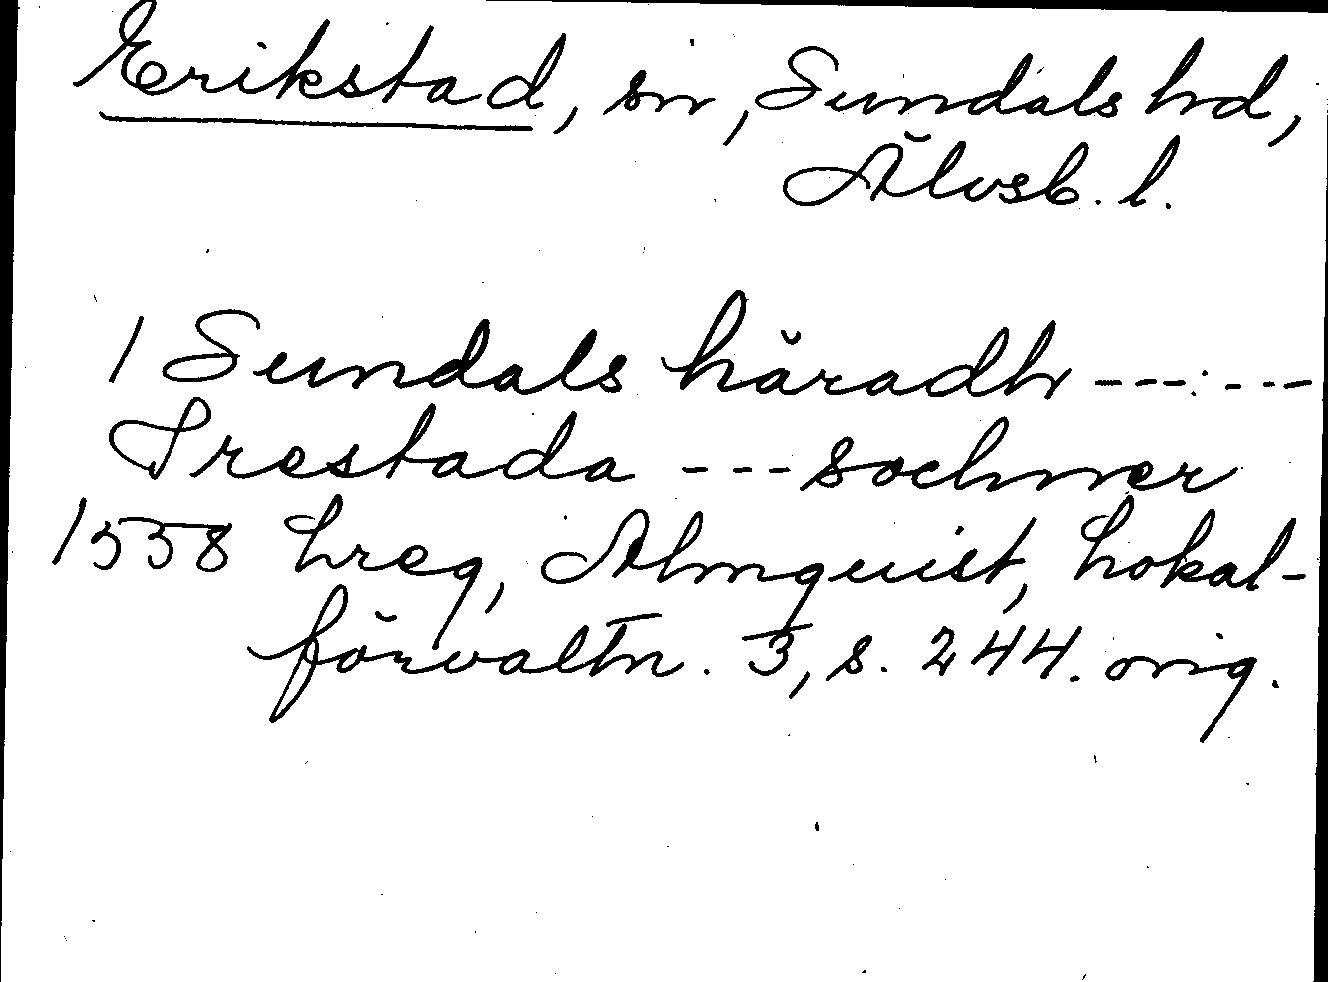 Erikstad, sn, Sundals hd,
Älvsb. l.
I Sundals häradh ---:---
Irestada --- sochner
1558 Lreg, Almquist, Lokal-
förvaltn. 3, s. 244. orig.